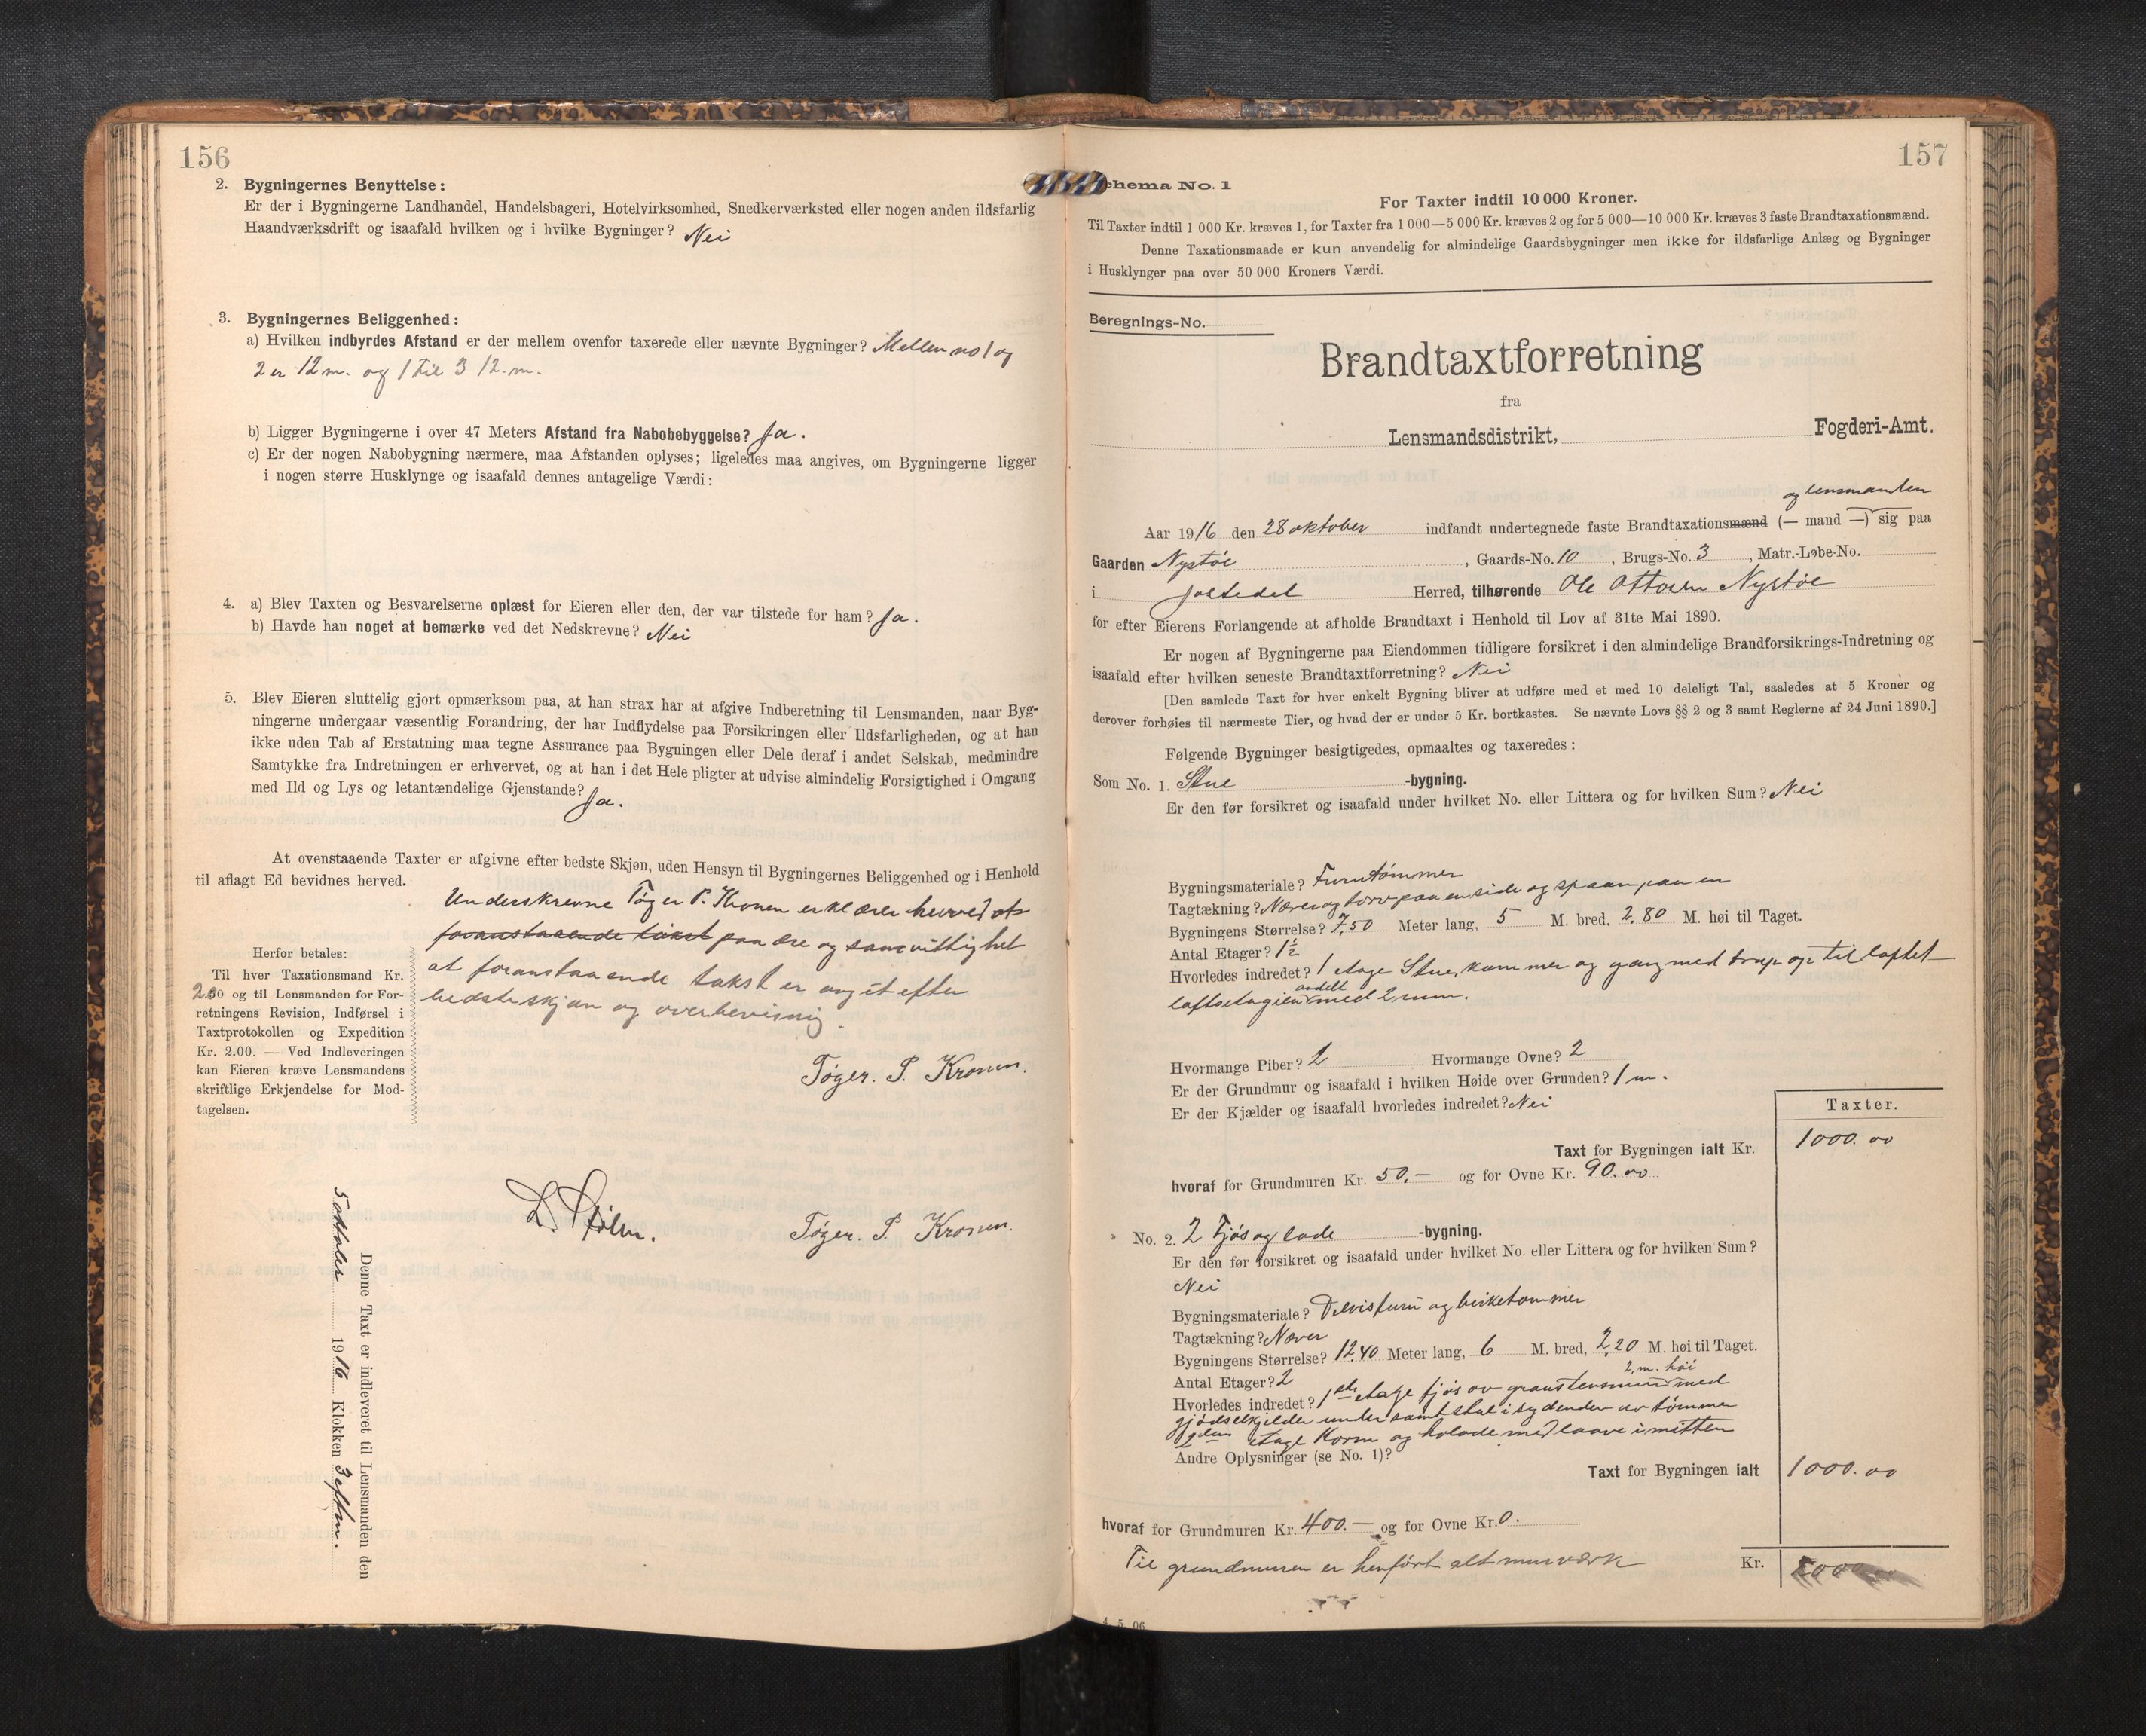 156
2. Bygningernes Benyttelse:
Er der i Bygningerne Landhandel, Handelsbageri, Hotelvirksomhed, Snedkerværksted eller nogen anden ildsfarlig
Haandværksdrift og isaafald hvilken og i hvilke Bygninger? Nei
3. Bygningernes Beliggenhed:
a) Hvilken indbyrdes Afstand er der mellem ovenfor taxerede eller nævnte Bygninger? Mellem no 1 og
2 er 12 m. og 1 til 3 12. m.
b) Ligger Bygningerne i over 47 Meters Afstand fra Nabobebyggelse? Ja.
c) Er der nogen Nabobygning nærmere, maa Afstanden oplyses; ligeledes maa angives, om Bygningerne ligger
i nogen større Husklynge og isaafald dennes antagelige Værdi:
4. a) Blev Taxten og Besvarelserne oplæst for Eieren eller den, der var tilstede for ham? Ja.
b) Havde han noget at bemærke ved det Nedskrevne? Nei
5. Blev Eieren sluttelig gjort opmærksom paa, at han strax har at afgive Indberetning til Lensmanden, naar Byg-
ningerne undergaar væsentlig Forandring, der har Indflydelse paa Forsikringen eller Ildsfarligheden, og at han
ikke uden Tab af Erstatning maa tegne Assurance paa Bygningen eller Dele deraf i andet Selskab, medmindre
Samtykke fra Indretningen er erhvervet, og at han i det Hele pligter at udvise almindelig Forsigtighed i Omgang
med Ild og Lys og letantændelige Gjenstande? Ja.
At ovenstaaende Taxter er afgivne efter bedste Skjøn, uden Hensyn til Bygningernes Beliggenhed og i Henhold
til aflagt Ed bevidnes herved.
Underskrevne Tøger P. Kronen erklærer herved at
foranstaaende takst paa ære og samvittighet
at foranstaaende takst er avgit efter
bedste skjøn og overbevisnig.
Tøger. P. Kronen.
Herfor betales:
Til hver Taxationsmand Kr.
2.00 og til Lensmanden for For-
retningens Revision, Indførsel i
Taxtprotokollen og Expedition
Kr. 2.00. — Ved Indleveringen
kan Eieren kræve Lensmandens
skriftlige Erkjendelse for Mod-
tagelsen.
Tøger. P. Kronen.
Denne Taxt er indleveret til Lensmanden den
1916 Klokken 3 eftm.
157
Schema No. 1
For Taxter indtil 10 000 Kroner.
Til Taxter indtil 1 000 Kr. kræves 1, for Taxter fra 1 000—5 000 Kr. kræves 2 og for 5 000—10 000 Kr. kræves 3 faste Brandtaxationsmænd.
Denne Taxationsmaade er kun anvendelig for almindelige Gaardsbygninger men ikke for ildsfarlige Anlæg og Bygninger
i Husklynger paa over 50 000 Kroners Værdi.
Beregnings-No.
Brandtaxtforretning
fra
Lensmandsdistrikt, Fogderi-Amt.
og lensmanden
Aar 1916 den 28 oktober indfandt undertegnede faste Brandtaxationsmænd (— mand —) sig paa
Gaarden Nystøe, Gaards-No. 10, Brugs-No. 3, Matr.-Løbe-No.
i Jostedal Herred, tilhørende Ole Ottosen Nystøe
for efter Eierens Forlangende at afholde Brandtaxt i Henhold til Lov af 31te Mai 1890.
Er nogen af Bygningerne paa Eiendommen tidligere forsikret i den almindelige Brandforsikrings-Indretning og
isaafald efter hvilken seneste Brandtaxtforretning? Nei
[Den samlede Taxt for hver enkelt Bygning bliver at udføre med et med 10 deleligt Tal, saaledes at 5 Kroner og
derover forhøies til nærmeste Tier, og hvad der er under 5 Kr. bortkastes. Se nævnte Lovs §§ 2 og 3 samt Reglerne af 24 Juni 1890.]
Følgende Bygninger besigtigedes, opmaaltes og taxeredes:
Som No. 1. Stue -bygning.
Er den før forsikret og isaafald under hvilket No. eller Littera og for hvilken Sum? Nei
Bygningsmateriale? Furutømmer
Tagtækning? Næver og torv paa en side og spaan paa en
Bygningens Størrelse? 7,50 Meter lang, 5 M. bred, 2.80 M. høi til Taget.
Antal Etager? 1½
Hvorledes indredet? 1 etage Stue, kammer og gang med trap op til loftet
loftsetagien andelt med 2 rum.
Hvormange Piber? 1 Hvormange Ovne? 2
Er der Grundmur og isaafald i hvilken Høide over Grunden? 1 m.
Er der Kjælder og isaafald hvorledes indredet? Nei
Taxter.
Taxt for Bygningen ialt Kr. 1000.00
hvoraf for Grundmuren Kr. 50.— og for Ovne Kr. 90.00
No. 2. 2 Fjøs og lade -bygning.
Er den før forsikret og isaafald under hvilket No. eller Littera og for hvilken Sum?
Nei
Bygningsmateriale? Delvis furu og birketømmer
Tagtækning? Næver
Bygningens Størrelse? 12,40 Meter lang, 6 M. bred, 2,20 M. høi til Taget.
Antal Etager? 2
2, m. høi
Hvorledes indredet? 1ste etage fjøs av graastensmur med
gjødselkjelder under samt stal i sydenden av tømmer
2den etage Korn og holade med laave i mitten
Andre Oplysninger (se No. 1)?
Taxt for Bygningen ialt 1000.00
hvoraf for Grundmuren Kr. 400.— og for Ovne Kr. 0.
Til grundmuren er henført alt murværk
Kr.
4 5 06